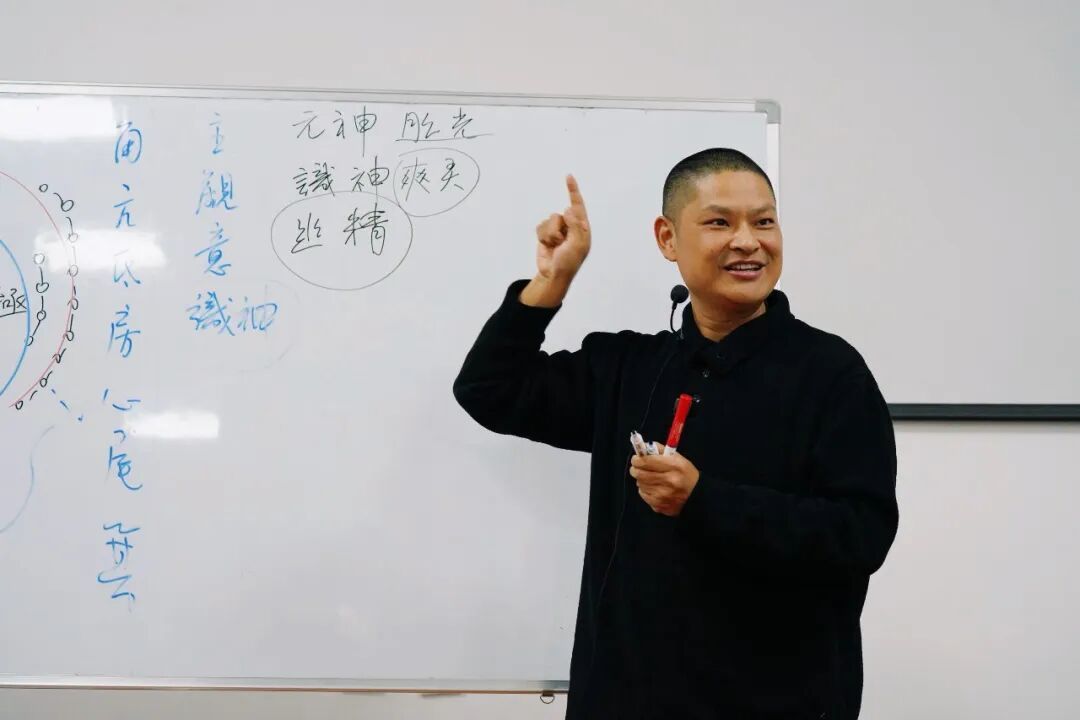 角亢氐房心尾箕
主觀意識神
元神 胎光
識神 爽灵
幽精